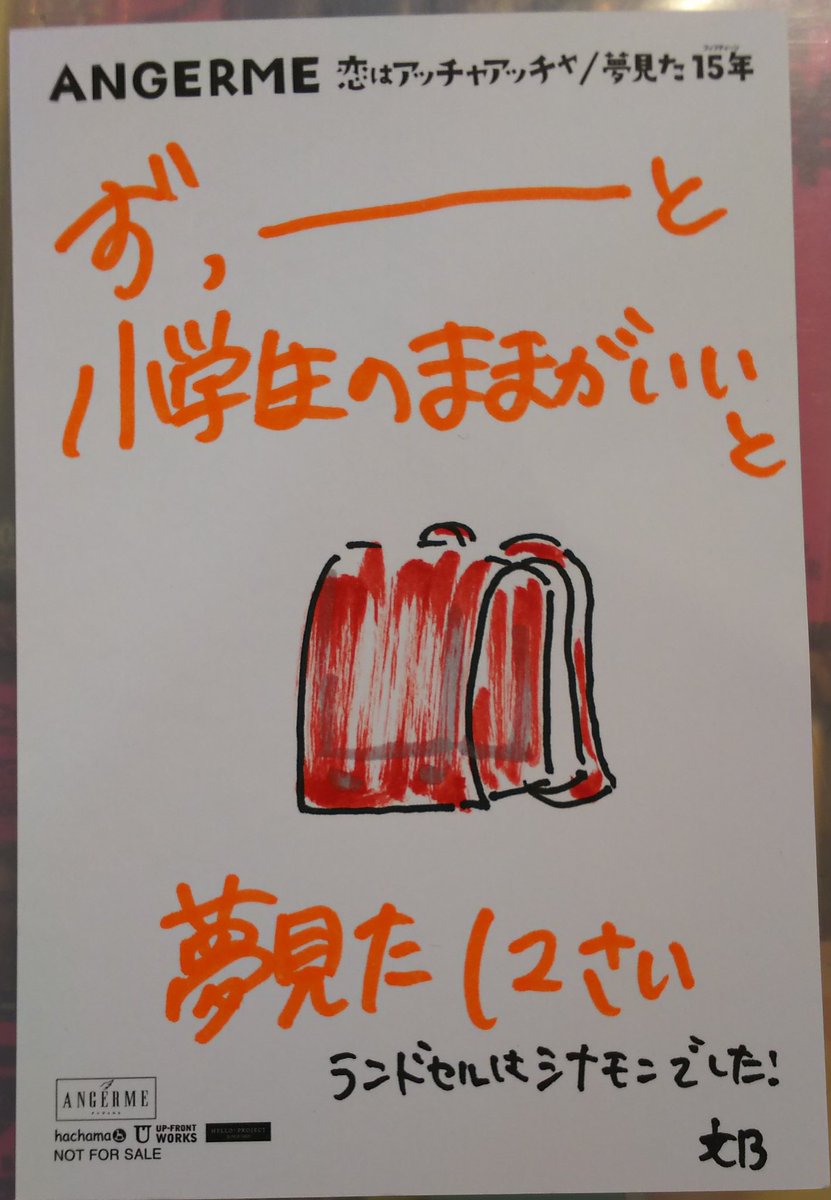 ANGERME 恋はアッチャアッチャ/夢見た15年
フィフティーン
ず、――と
小学生のままがいい
と
夢見た12さい
ランドセルはシナモンでした!
ANGERME
アンジュルム
hachama UP-FRONT WORKS HELLO! PROJECT
NOT FOR SALE